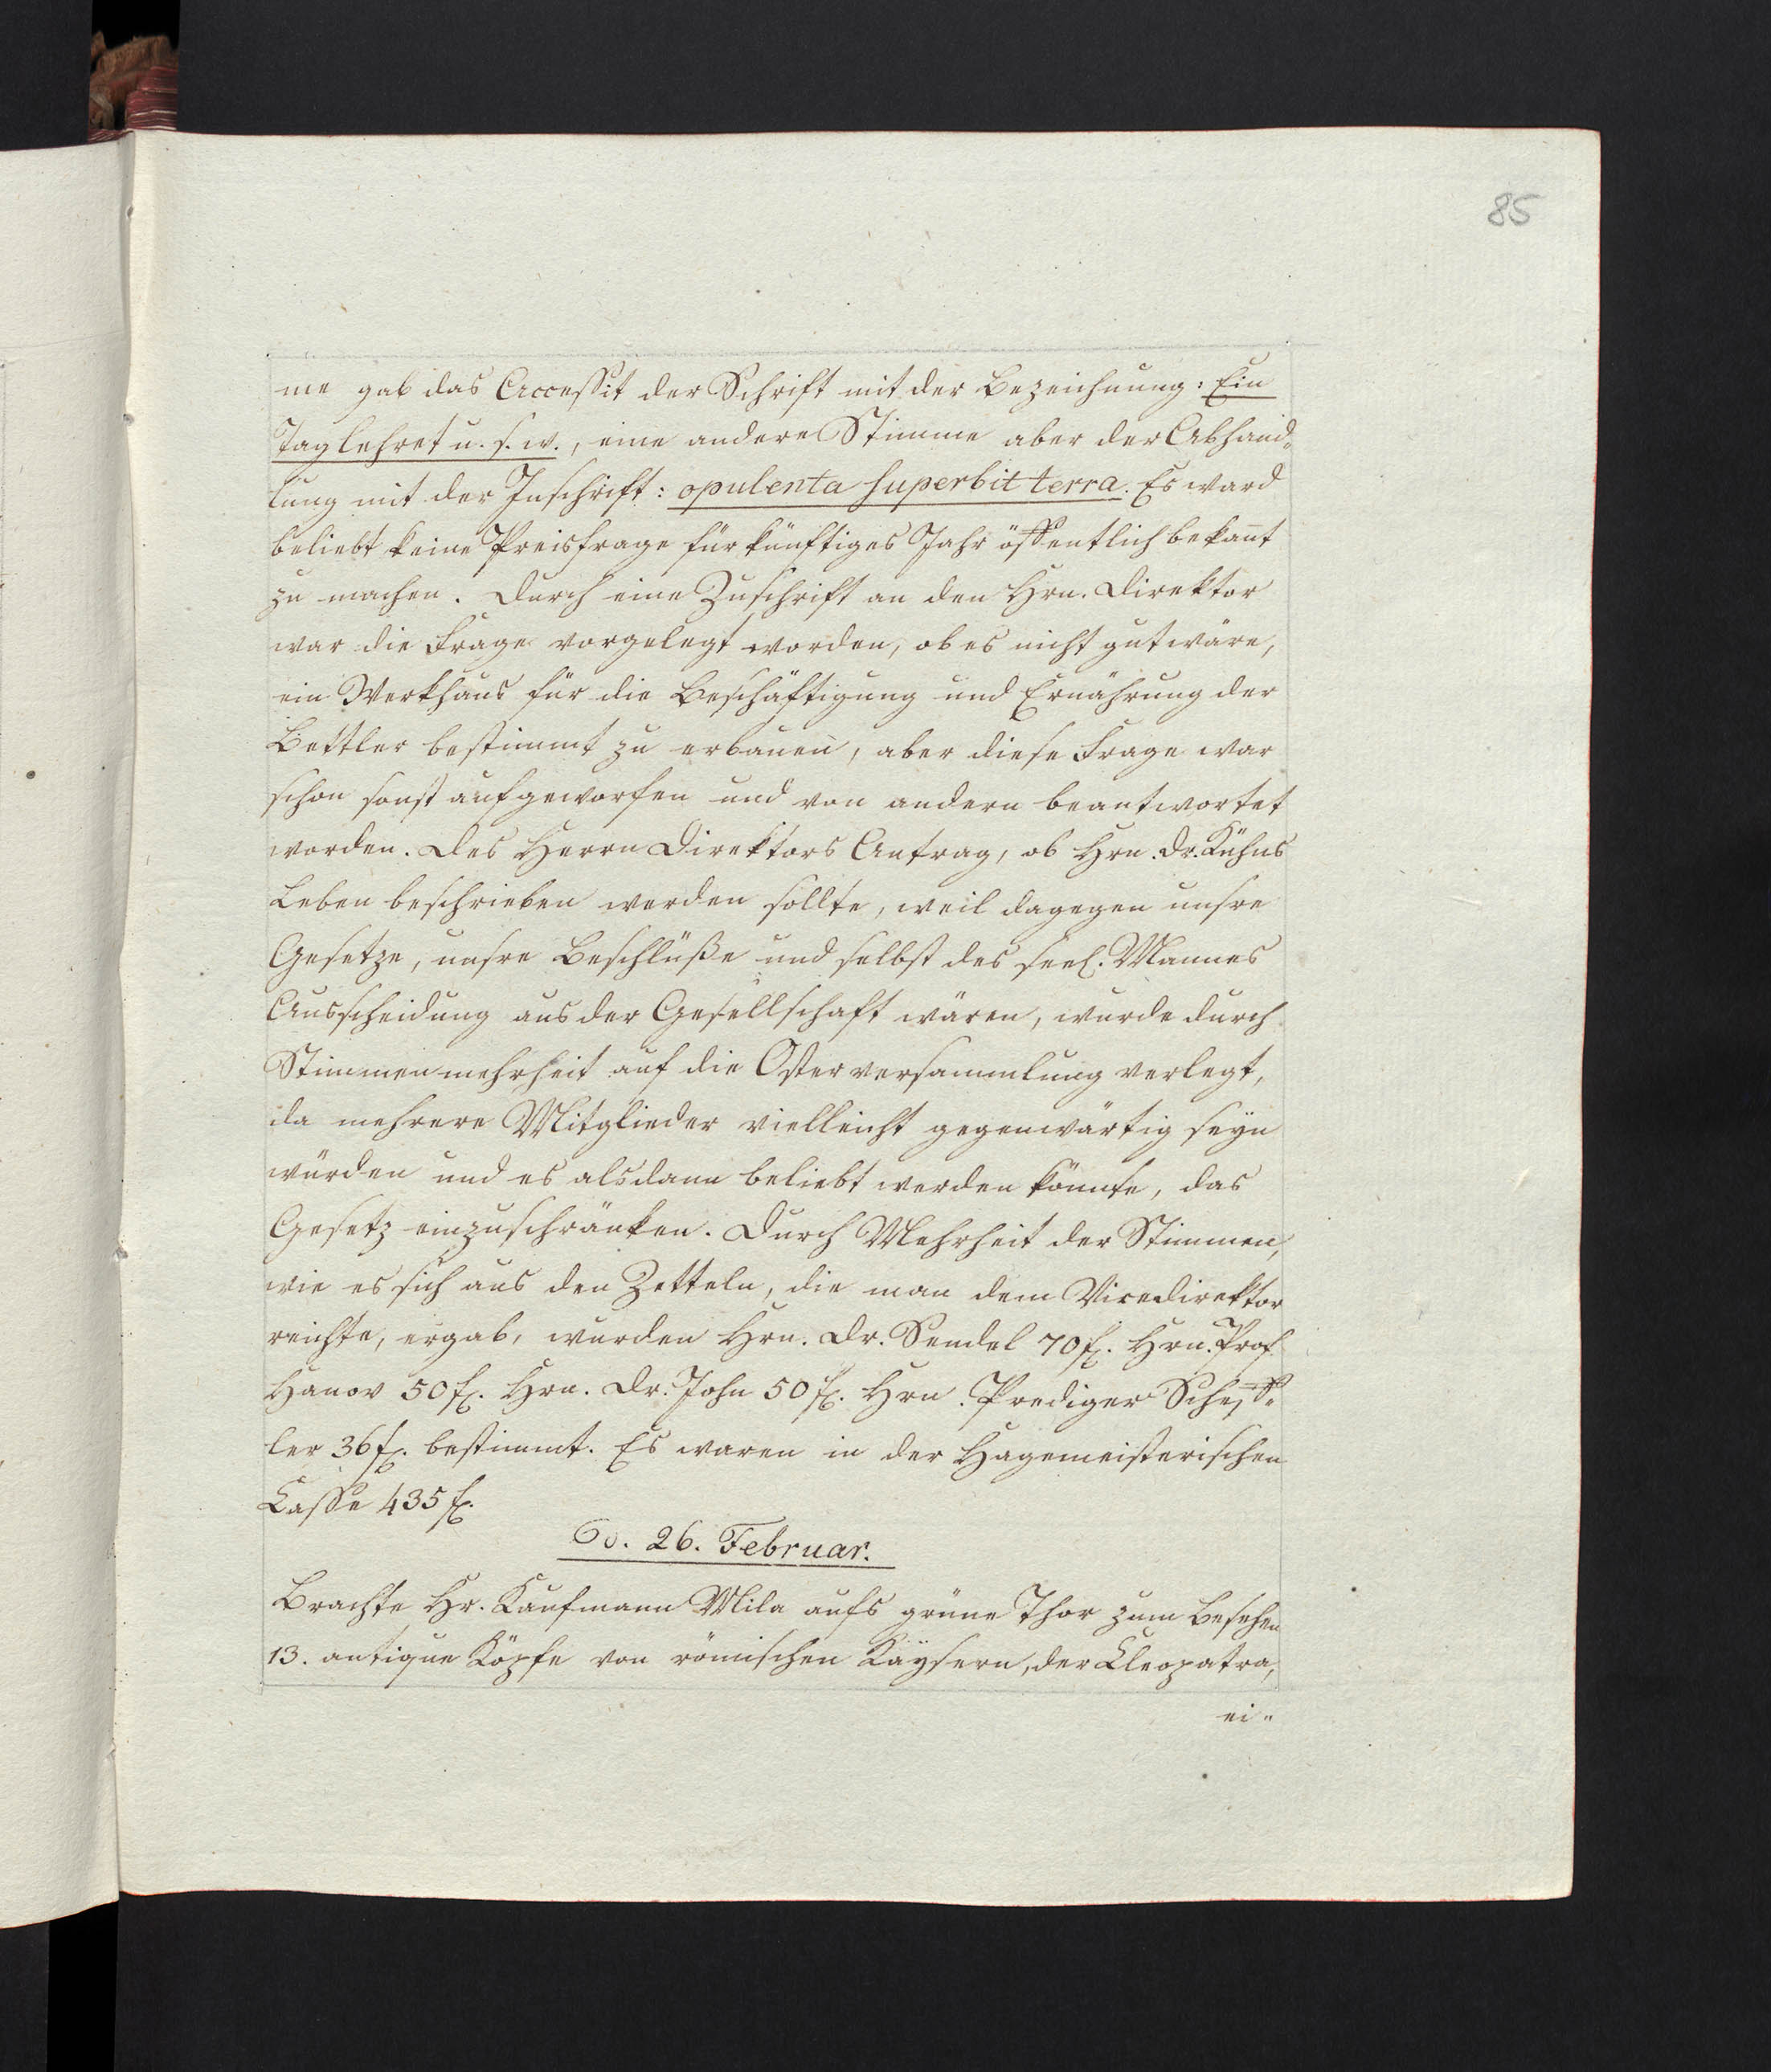 85
me gab das Accessit der Schrift mit der Bezeichnung: Ein
Tag lehret u. s. w., eine andere Stimme aber der Abhand-
lung mit der Inschrift: opulenta superbit terra. Es ward
beliebt keine Preisfrage für künftiges Jahr öffentlich bekañt
zu machen. Durch eine Zuschrift an den Hrn. Direktor
war die Frage vorgelegt worden, ob es nicht gut wäre,
ein Werkhaus für die Beschäftigung und Ernährung der
Bettler bestimmt zu erbauen, aber diese Frage war
schon sonst aufgeworfen und von andern beantwortet
worden. Des Herrn Direktors Antrag, ob Hrn. Dr. Kühns
Leben beschrieben werden sollte, weil dagegen unsre
Gesetze, unsre Beschlüße und selbst des seel. Mannes
Ausscheidung aus der Gesellschaft wären, wurde durch
Stimmenmehrheit auf die Osterversammlung verlegt,
da mehrere Mitglieder vielleicht gegenwärtig seyn
würden und es alsdann beliebt werden könnte, das
Gesetz einzuschränken. Durch Mehrheit der Stimmen,
wie es sich aus den Zetteln, die man dem Vicedirektor
reichte, ergab, wurden Hrn. Dr. Sendel 70 f. Hrn. Prof
Hanov 50 f. Hrn. Dr. John 50 f. Hrn. Prediger Scheff-
ler 36 f. bestimmt. Es waren in der Hagemeisterischen
Casse 435 f.
D. 26. Februar.
Brachte Hr. Kaufmann Mila aufs grüne Thor zum Besehen
13. antique Köpfe von römischen Kaysern, der Cleopatra,
ei-